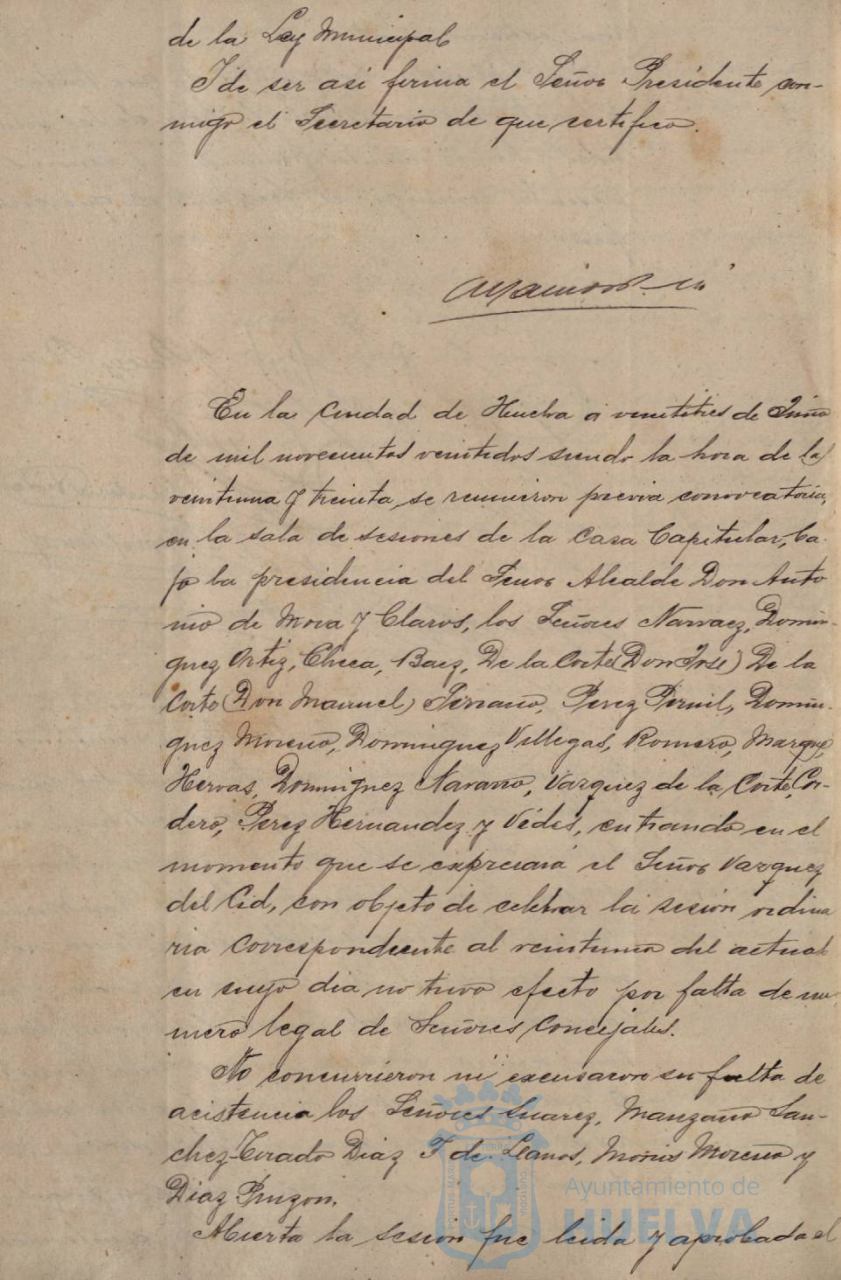 de la Ley Municipal
I de ser asi firma el Señor Presidente con-
migo el Secretario de que certifico.
En la Ciudad de Huelva a veintitres de Junio
de mil novecientos veintidos siendo la hora de la
veintiuna y treinta se reunieron previa convocatoria,
en la sala de sesiones de la Casa Capitular, ba-
jo la presidencia del Señor Alcalde Don Anto
nio de Mora y Claros, los Señores Narvaez, Domin-
guez Ortiz, Checa, Baez, De la Corte (Don Jose) De la
Corte (Don Manuel) Serrano, Perez Pernil, Domin-
guez Moreno, Dominguez Villegas, Romero, Marquez,
Hervas, Dominguez Navarro, Vazquez de la Corte, Cor-
dero, Perez Hernandez y Vides, entrando en el
momento que se expresará el Señor Vazquez
del Cid, con objeto de celebrar la sesión ordina
ria correspondiente al veintiuno del actual
en cuyo dia no tuvo efecto por falta de nu
mero legal de Señores Concejales.
No concurrieron ni excusaron su falta de
acistencia los Señores Suarez, Manzano San-
chez-Tirado Diaz F. de Leanos, Moreno y
Diaz Pinzon.
Abierta la sesión fue leida y aprobada el
Ayuntamiento de
HUELVA